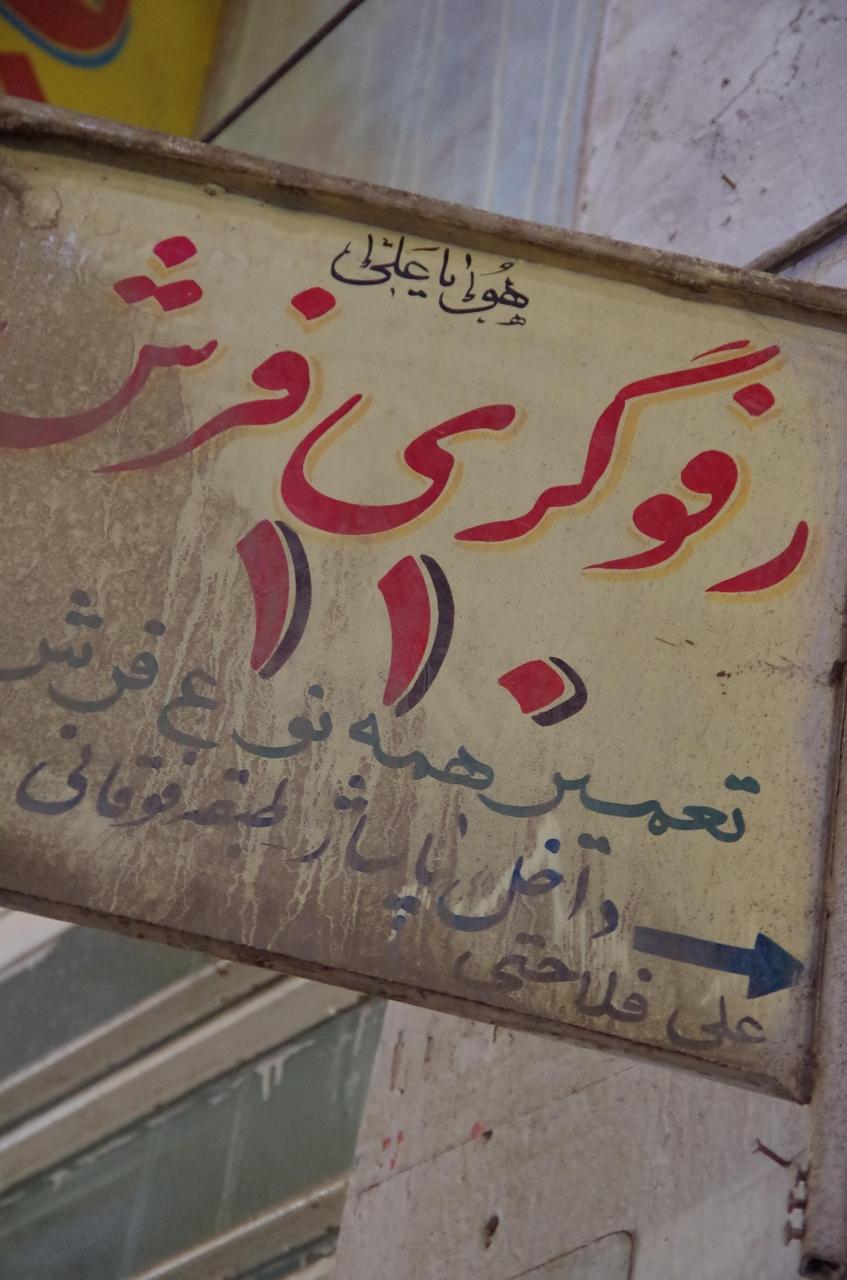 هو یا علی
رفوگری فرش
۱۱۰
تعمیر همه نوع فرش
داخل پاساژ طبقه فوقانی
علی فلاحتی